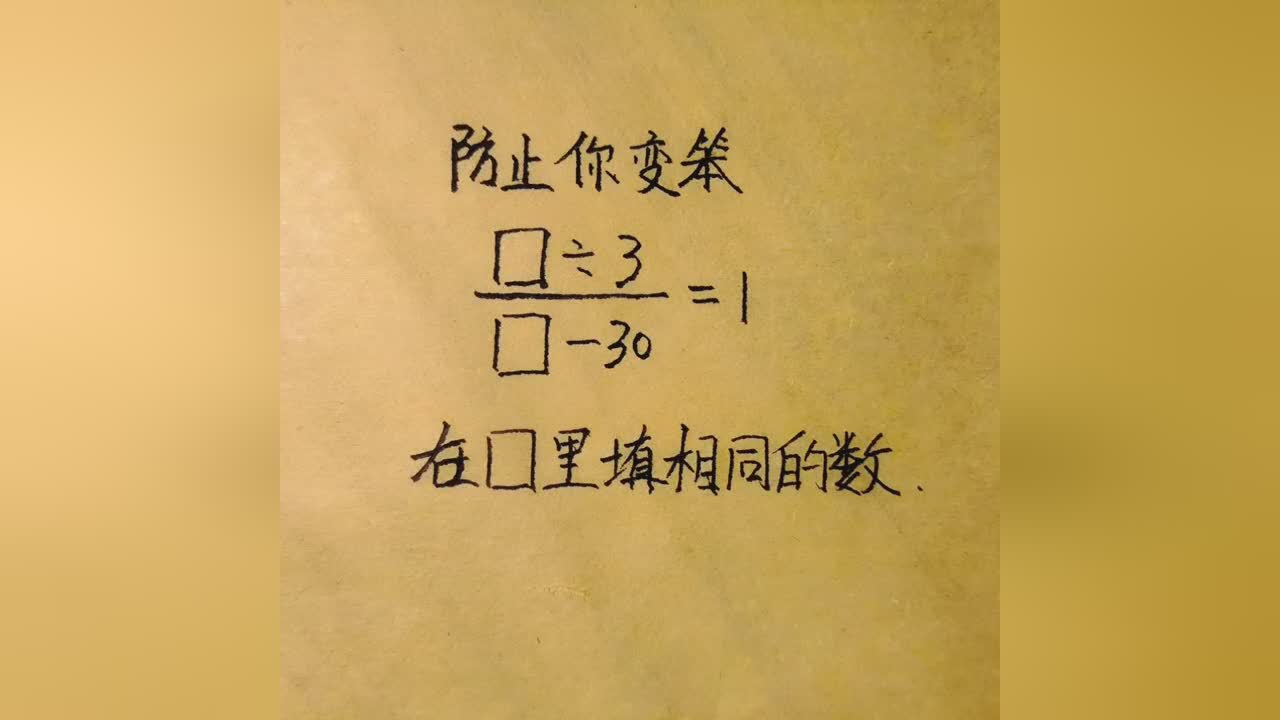 防止你变笨
□÷3
□-30
=1
在□里填相同的数.